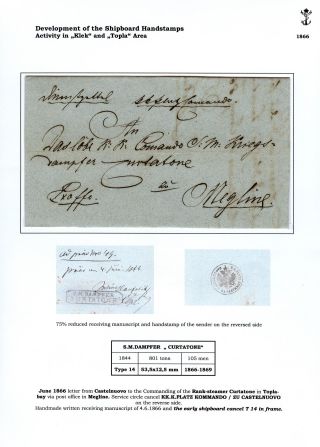 Development of the Shipboard Handstamps
Activity in „Klek“ and „Topla“ Area
1866
An
Das löbl. K. K. Comando S. M. Kriegs-
dampfer Curtatone
zu
Megline.
S.M.DAMPFER
CURTATONE
75% reduced receiving manuscript and handstamp of the sender on the reversed side
S.M.DAMPFER „ CURTATONE“
1844 801 tons 105 men
Type 14 53,5x12,5 mm 1866-1869
June 1866 letter from Castelnuovo to the Commanding of the Rank-steamer Curtatone in Topla-
bay via post office in Megline. Service circle cancel KK.K.PLATZ KOMMANDO / ZU CASTELNUOVO
on the reverse side.
Handmade written receiving manuscript of 4.6.1866 and the early shipboard cancel T 14 in frame.